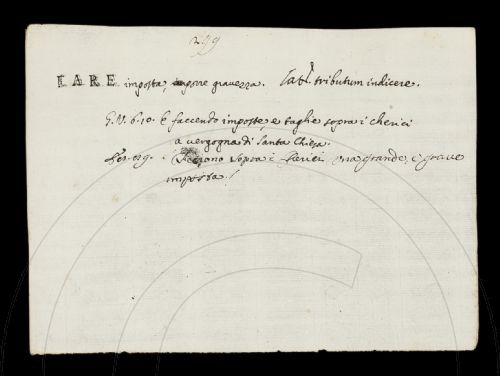 299
FARE imposta, imporre gravezza. Lat. tributum indicere.
G.V. 6. 10. E faccendo imposte, e taglie sopra i cherici
a vergogna di Santa Chiesa.
Feciono sopra i Cherici una grande, e grave
imposta.